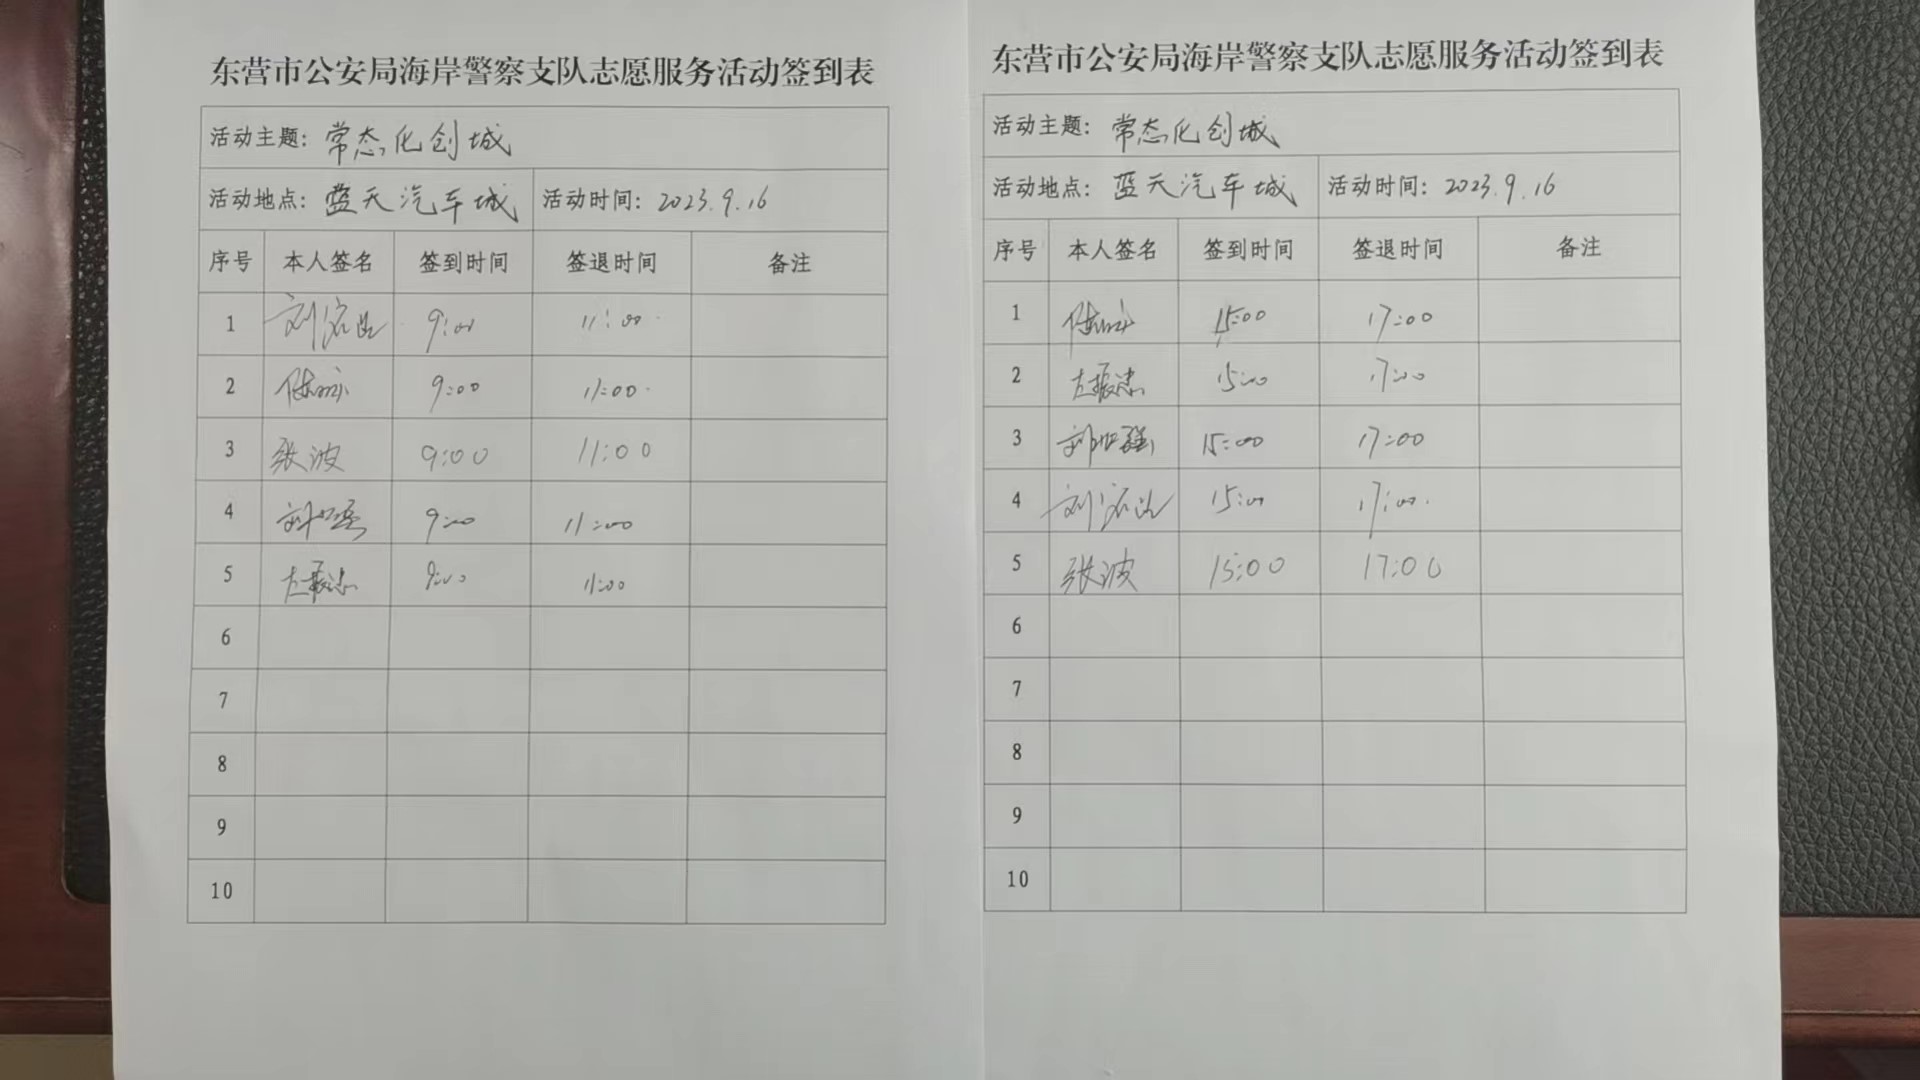 东营市公安局海岸警察支队志愿服务活动签到表
活动主题: 常态化创城
活动地点: 蓝天汽车城 活动时间: 2023.9.16
序号 本人签名 签到时间 签退时间 备注
1 9:00 11:00
2 9:00 11:00
3 张波 9:00 11:00
4 9:00 11:00
5 左振忠 9:00 11:00
6
7
8
9
10
东营市公安局海岸警察支队志愿服务活动签到表
活动主题: 常态化创城
活动地点: 蓝天汽车城 活动时间: 2023.9.16
序号 本人签名 签到时间 签退时间 备注
1 15:00 17:00
2 左振忠 15:00 17:00
3 15:00 17:00
4 15:00 17:00
5 张波 15:00 17:00
6
7
8
9
10